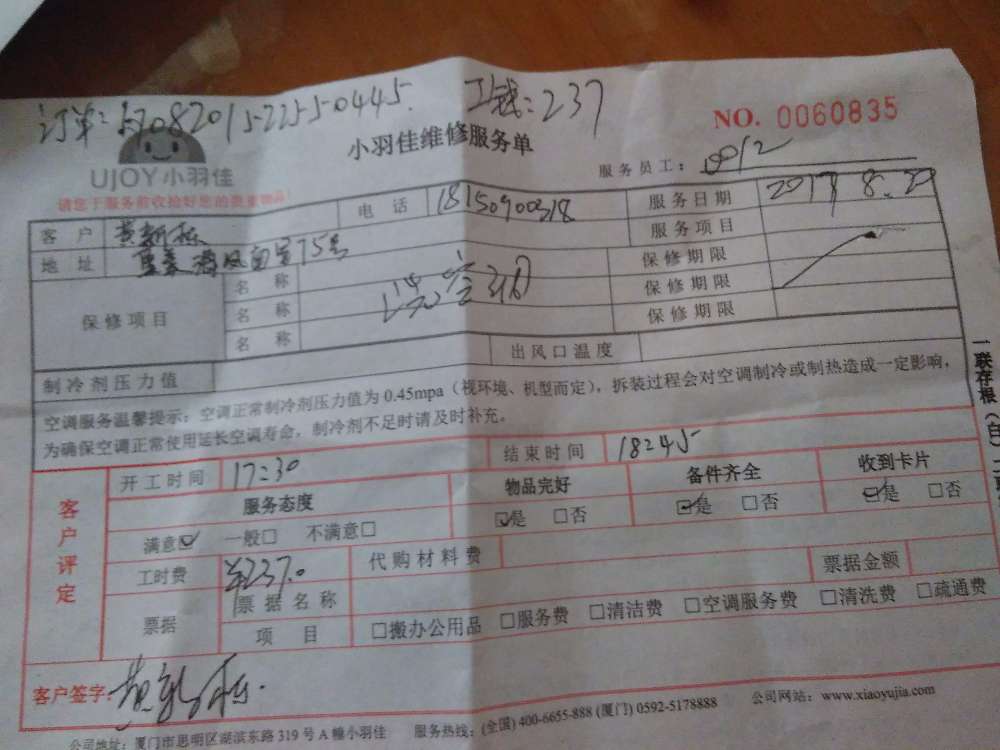 订单: 17082015-2255-0445. 工钱: 237
小羽佳维修服务单
NO. 0060835
UJOY小羽佳
服务员工: 0012
请您于服务前收拾好您的贵重物品!
客户 黄新 电话 18150900318 服务日期 2017 8.20
地址 75号 服务项目
保修项目 名称 保修期限
名称 保修期限
名称 保修期限
制冷剂压力值 出风口温度
空调服务温馨提示: 空调正常制冷剂压力值为 0.45mpa (视环境、机型而定), 拆装过程会对空调制冷或制热造成一定影响,
为确保空调正常使用延长空调寿命, 制冷剂不足时请及时补充。
一联存根(白)
客户评定
开工时间 17:30 结束时间 18:45
服务态度 物品完好 备件齐全 收到卡片
满意☑ 一般□ 不满意□ ☑是 □否 ☑是 □否 ☑是 □否
工时费 ¥237.0 代购材料费 票据金额
票据 票据名称
项目 □搬办公用品 □服务费 □清洁费 □空调服务费 □清洗费 □疏通费
客户签字: 黄新
公司地址: 厦门市思明区湖滨东路 319 号 A 幢小羽佳 服务热线: (全国) 400-6655-888 (厦门) 0592-5178888 公司网站: www.xiaoyujia.com